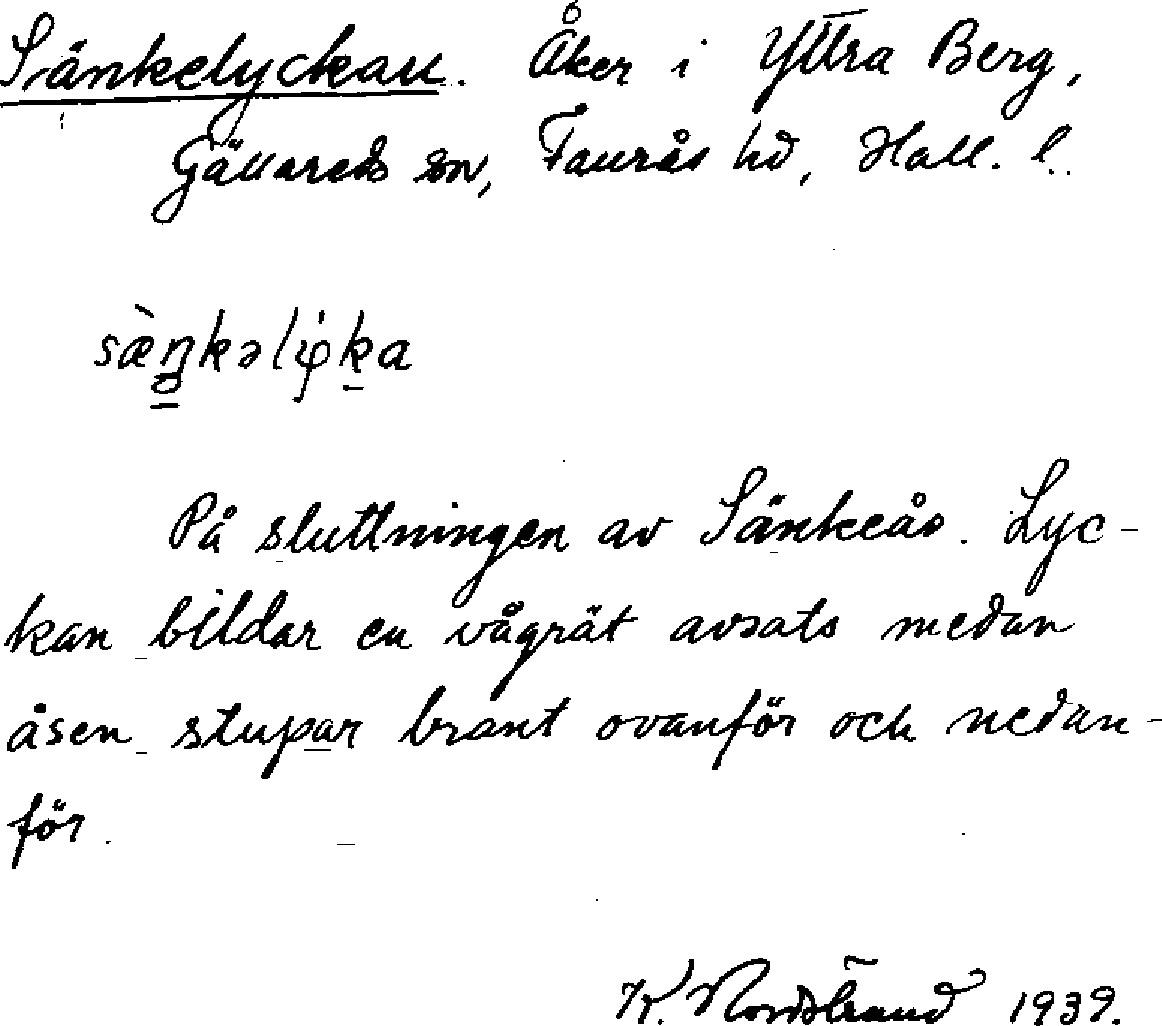 Sänkelyckan. Åker i Yttra Berg,
Gällareds sn, Faurås hd, Hall. l.
sæ̀ŋkəlyka
På sluttningen av Sänkeås. Lyc-
kan bildar en vågrät avsats medan
åsen stupar brant ovanför och nedan-
för.
K. Nordstrand 1939.